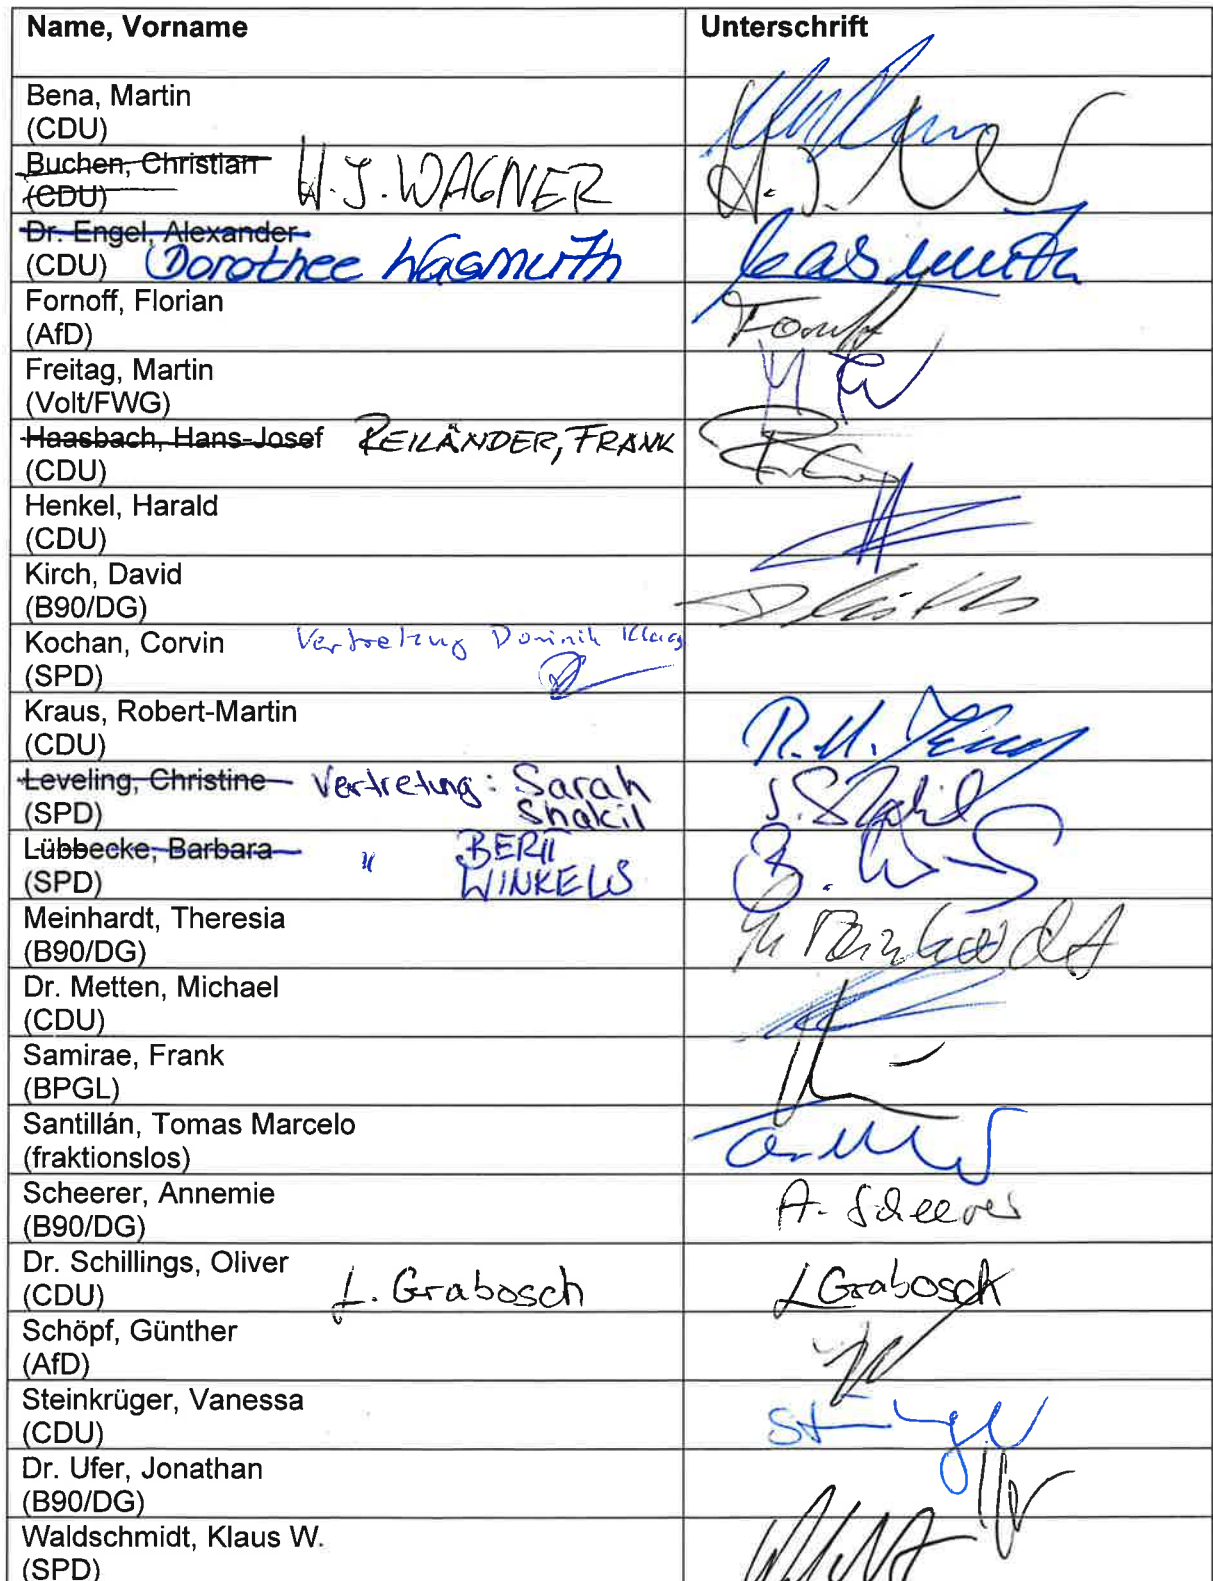 Name, Vorname Unterschrift
Bena, Martin
(CDU)
Buchen, Christian H.J. WAGNER
(CDU)
Dr. Engel, Alexander
(CDU) Dorothee Wasmuth Wasmuth
Fornoff, Florian
(AfD)
Freitag, Martin
(Volt/FWG)
Haasbach, Hans-Josef REILÄNDER, FRANK
(CDU)
Henkel, Harald
(CDU)
Kirch, David
(B90/DG)
Kochan, Corvin Vertretung Dominik Klaas
(SPD)
Kraus, Robert-Martin
(CDU)
Leveling, Christine Vertretung: Sarah
(SPD) Shakil S. Shakil
Lübbecke, Barbara " BERIT
(SPD) WINKELS
Meinhardt, Theresia
(B90/DG)
Dr. Metten, Michael
(CDU)
Samirae, Frank
(BPGL)
Santillán, Tomas Marcelo
(fraktionslos)
Scheerer, Annemie
(B90/DG) A. Scheerer
Dr. Schillings, Oliver
(CDU) L. Grabosch L Grabosch
Schöpf, Günther
(AfD)
Steinkrüger, Vanessa
(CDU)
Dr. Ufer, Jonathan
(B90/DG)
Waldschmidt, Klaus W.
(SPD)